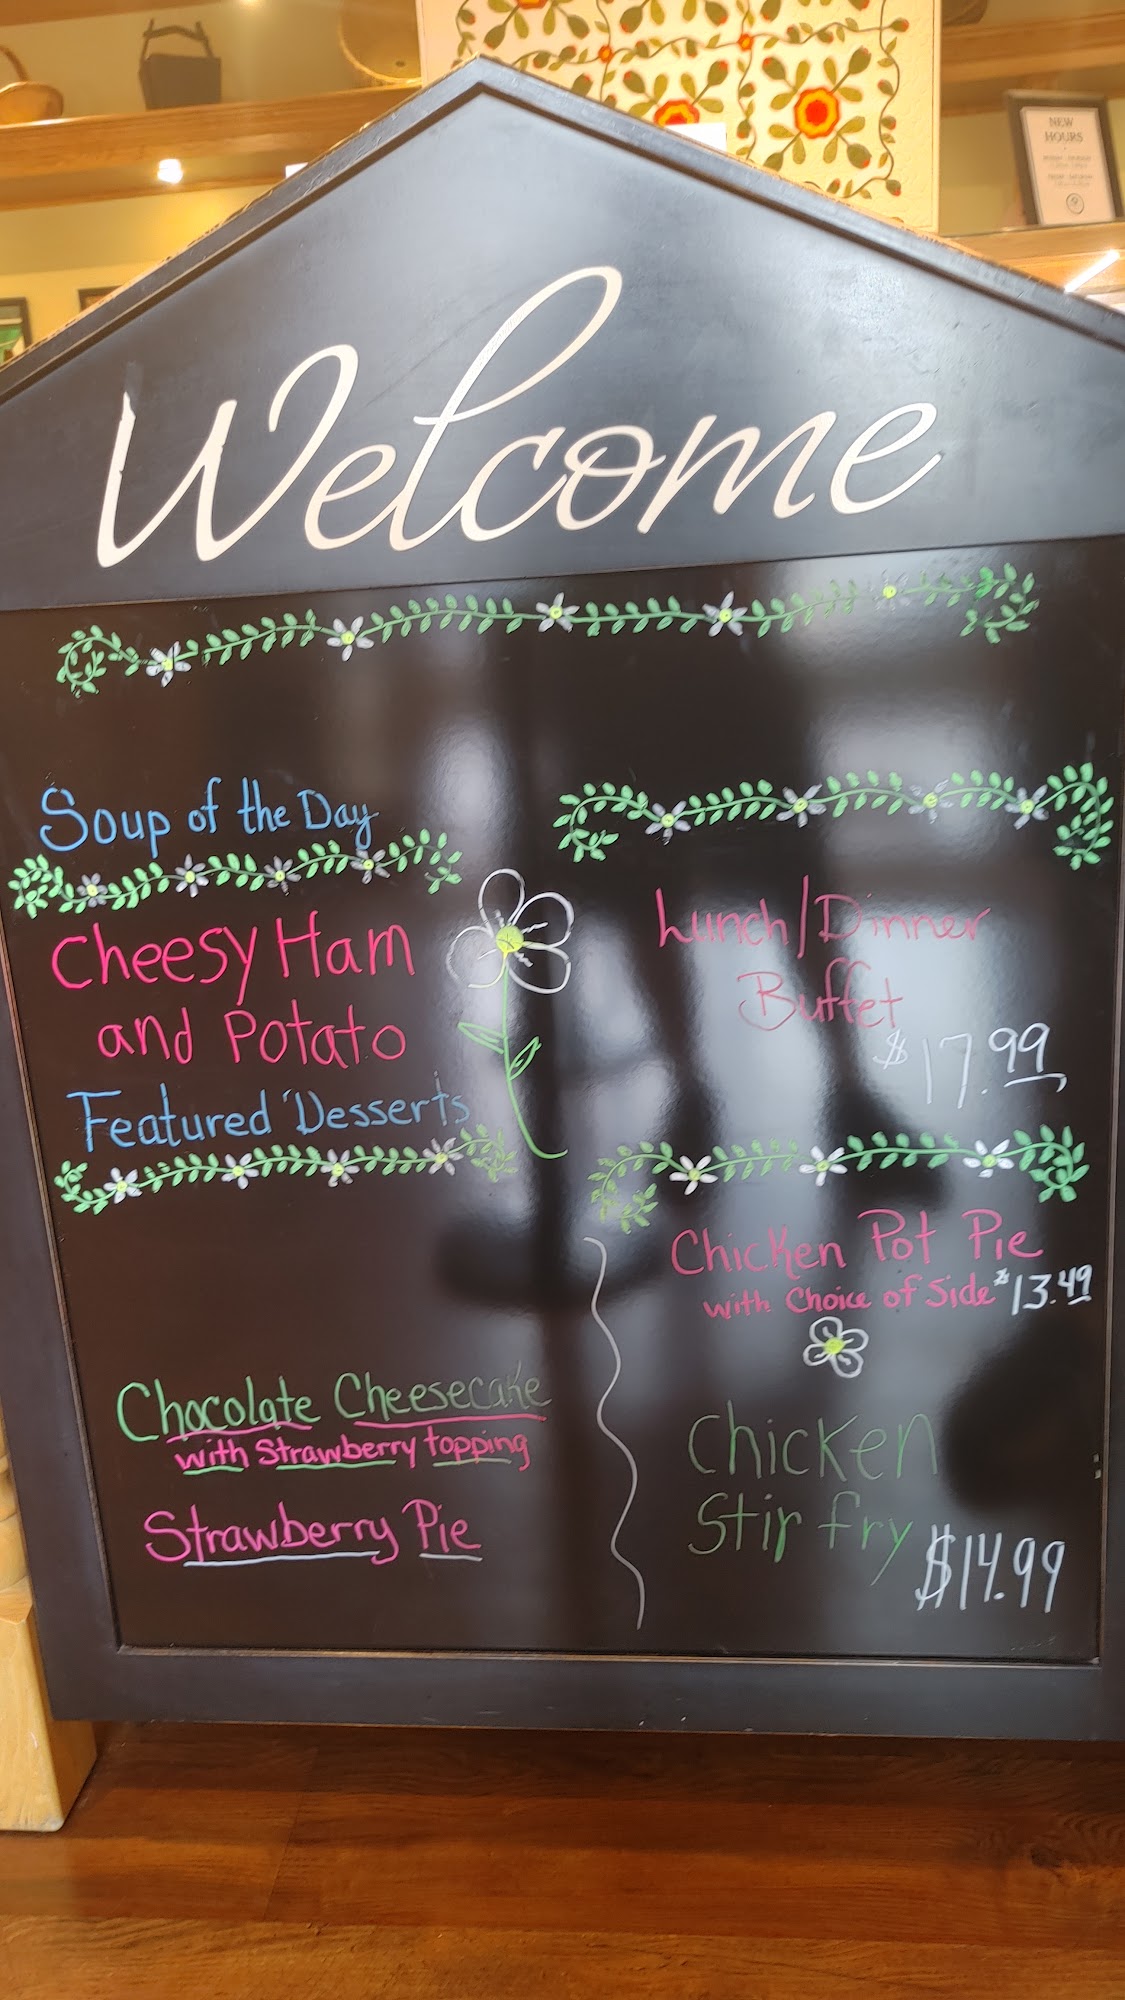 NEW
HOURS
Welcome
Soup of the Day
Cheesy Ham
and Potato
Featured Desserts
Chocolate Cheesecake
with Strawberry topping
Strawberry Pie
Lunch/Dinner
Buffet
$17.99
Chicken Pot Pie
with Choice of Side $13.49
Chicken
Stir fry
$14.99